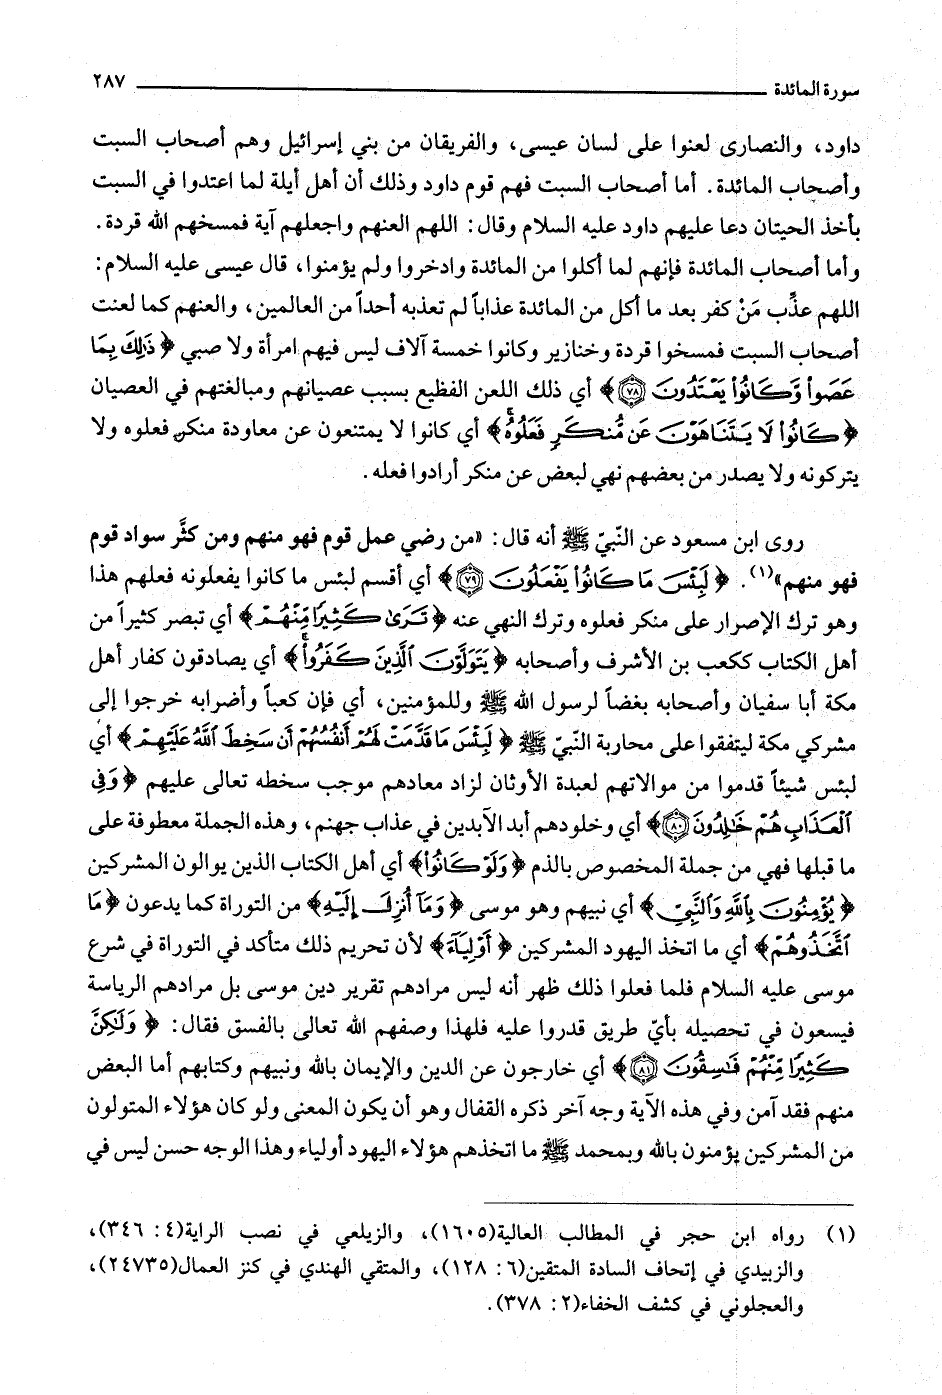 سورة المائدة ٢٨٧
داود، والنصارى لعنوا على لسان عيسى، والفريقان من بني إسرائيل وهم أصحاب السبت
وأصحاب المائدة. أما أصحاب السبت فهم قوم داود وذلك أن أهل أيلة لما اعتدوا في السبت
بأخذ الحيتان دعا عليهم داود عليه السلام وقال: اللهم العنهم واجعلهم آية فمسخهم الله قردة.
وأما أصحاب المائدة فإنهم لما أكلوا من المائدة وادخروا ولم يؤمنوا، قال عيسى عليه السلام:
اللهم عذِّب مَنْ كفر بعد ما أكل من المائدة عذاباً لم تعذبه أحداً من العالمين، والعنهم كما لعنت
أصحاب السبت فمسخوا قردة وخنازير وكانوا خمسة آلاف ليس فيهم امرأة ولا صبي ﴿ذَٰلِكَ بِمَا
عَصَوا وَّكَانُوا يَعْتَدُونَ ٧٨﴾ أي ذلك اللعن الفظيع بسبب عصيانهم ومبالغتهم في العصيان
﴿كَانُوا لَا يَتَنَاهَوْنَ عَن مُّنكَرٍ فَعَلُوهُ﴾ أي كانوا لا يمتنعون عن معاودة منكر فعلوه ولا
يتركونه ولا يصدر من بعضهم نهي لبعض عن منكر أرادوا فعله.
روى ابن مسعود عن النّبيّ ﷺ أنه قال: «من رضي عمل قوم فهو منهم ومن كثَّر سواد قوم
فهو منهم»(١). ﴿لَبِئْسَ مَا كَانُوا يَفْعَلُونَ ٧٩﴾ أي أقسم لبئس ما كانوا يفعلونه فعلهم هذا
وهو ترك الإصرار على منكر فعلوه وترك النهي عنه ﴿تَرَىٰ كَثِيرًا مِّنْهُمْ﴾ أي تبصر كثيراً من
أهل الكتاب ككعب بن الأشرف وأصحابه ﴿يَتَوَلَّوْنَ الَّذِينَ كَفَرُوا﴾ أي يصادقون كفار أهل
مكة أبا سفيان وأصحابه بغضاً لرسول الله ﷺ وللمؤمنين، أي فإن كعباً وأضرابه خرجوا إلى
مشركي مكة ليتفقوا على محاربة النّبيّ ﷺ ﴿لَبِئْسَ مَا قَدَّمَتْ لَهُمْ أَنفُسُهُمْ أَن سَخِطَ اللَّهُ عَلَيْهِمْ﴾ أي
لبئس شيئاً قدموا من موالاتهم لعبدة الأوثان لزاد معادهم موجب سخطه تعالى عليهم ﴿وَفِي
الْعَذَابِ هُمْ خَالِدُونَ ٨٠﴾ أي وخلودهم أبد الآبدين في عذاب جهنم، وهذه الجملة معطوفة على
ما قبلها فهي من جملة المخصوص بالذم ﴿وَلَوْ كَانُوا﴾ أي أهل الكتاب الذين يوالون المشركين
﴿يُؤْمِنُونَ بِاللَّهِ وَالنَّبِيِّ﴾ أي نبيهم وهو موسى ﴿وَمَا أُنزِلَ إِلَيْهِ﴾ من التوراة كما يدعون ﴿مَا
اتَّخَذُوهُمْ﴾ أي ما اتخذ اليهود المشركين ﴿أَوْلِيَاءَ﴾ لأن تحريم ذلك متأكد في التوراة في شرع
موسى عليه السلام فلما فعلوا ذلك ظهر أنه ليس مرادهم تقرير دين موسى بل مرادهم الرياسة
فيسعون في تحصيله بأيّ طريق قدروا عليه فلهذا وصفهم الله تعالى بالفسق فقال: ﴿وَلَٰكِنَّ
كَثِيرًا مِّنْهُمْ فَاسِقُونَ ٨١﴾ أي خارجون عن الدين والإيمان بالله ونبيهم وكتابهم أما البعض
منهم فقد آمن وفي هذه الآية وجه آخر ذكره القفال وهو أن يكون المعنى ولو كان هؤلاء المتولون
من المشركين يؤمنون بالله وبمحمد ﷺ ما اتخذهم هؤلاء اليهود أولياء وهذا الوجه حسن ليس في
(١) رواه ابن حجر في المطالب العالية(١٦٠٥)، والزيلعي في نصب الراية(٤: ٣٤٦)،
والزبيدي في إتحاف السادة المتقين(٦: ١٢٨)، والمتقي الهندي في كنز العمال(٢٤٧٣٥)،
والعجلوني في كشف الخفاء(٢: ٣٧٨).